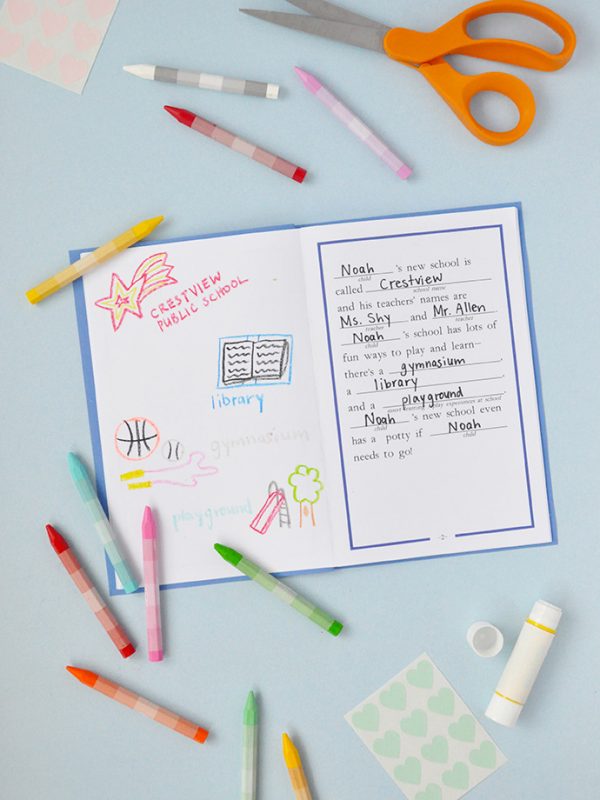 CRESTVIEW
PUBLIC SCHOOL
library
gymnasium
playground
Noah 's new school is
child
called Crestview
school name
and his teachers' names are
Ms. Shy and Mr. Allen.
teacher teacher
Noah 's school has lots of
child
fun ways to play and learn—
there's a gymnasium
a library
and a playground
Noah 's new school even
child
has a potty if Noah
child
needs to go!
-2-